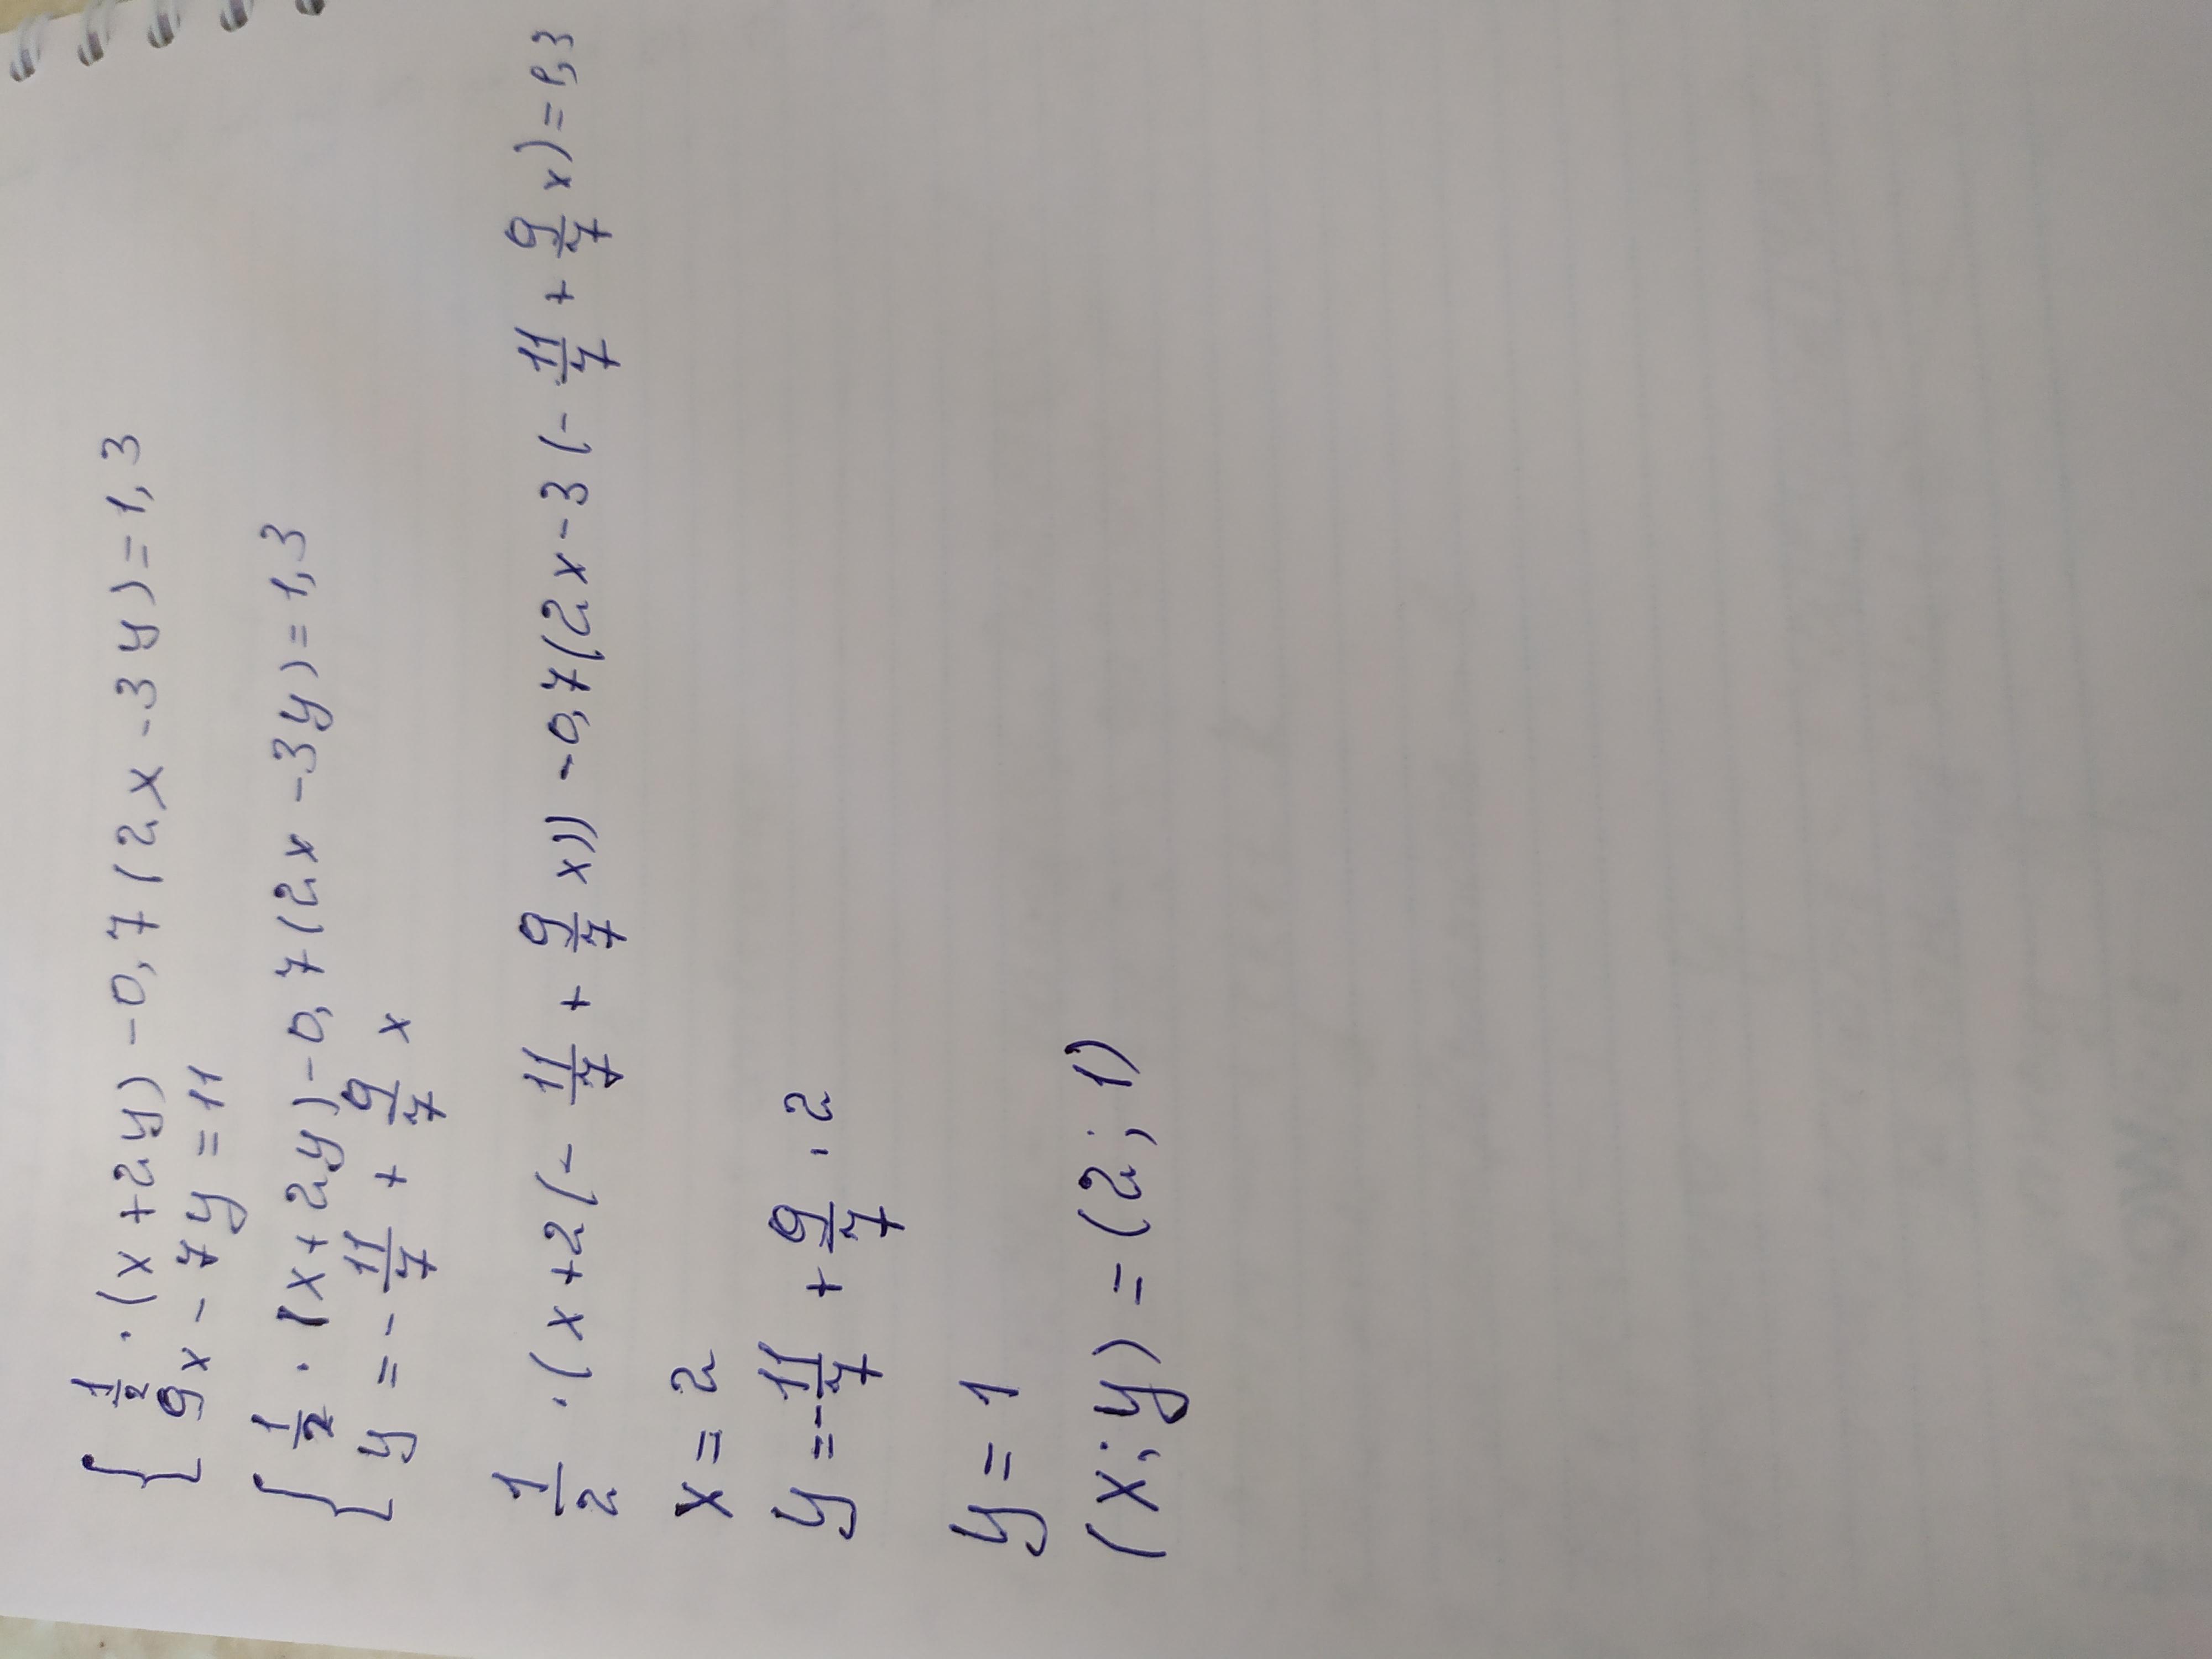 { 1/2 · (x + 2y) - 0,7 (2x - 3y) = 1,3
9x - 7y = 11
{ 1/2 · (x + 2y) - 0,7 (2x - 3y) = 1,3
y = - 11/7 + 9/7 x
1/2 · (x + 2 (- 11/7 + 9/7 x)) - 0,7 (2x - 3 (- 11/7 + 9/7 x) = 1,3
x = 2
y = - 11/7 + 9/7 · 2
y = 1
(x; y) = (2; 1)